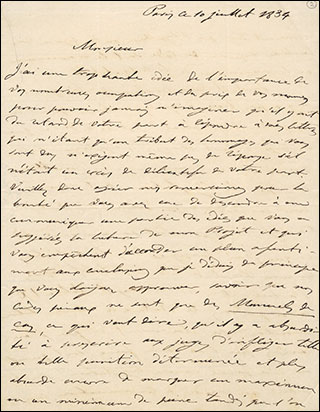 Paris ce 10 juillet 1834
Monsieur
J'ai une trop haute idée de l'importance de
vos nombreuses occupations et du prix de vos momens
pour pouvoir jamais m'imaginer qu'il y ait
du retard de votre part à répondre à mes lettres
qui n'étant qu'un tribut des hommages qui vous
sont dus n'exigent même pas de réponse s'il
n'était un excès de délicatesse de votre part.
Veuillez donc agréer mes remercimens pour la
bonté que vous avez eue de descendre à me
communiquer une partie des idées que vous a
suggérées la lecture de mon Projet et qui
vous empêchent d'accorder un plein assenti-
ment aux conclusions que je déduis du principe
que vous daignez approuver, savoir que nos
codes pénaux ne sont que des Manuels de
, ce qui veut dire, qu'il y a absurdi-
té à prescrire aux juges d'infliger telle
ou telle punition déterminée et plus
absurde encore de marquer un maximum
ou un minimum de peine tandis que l'on